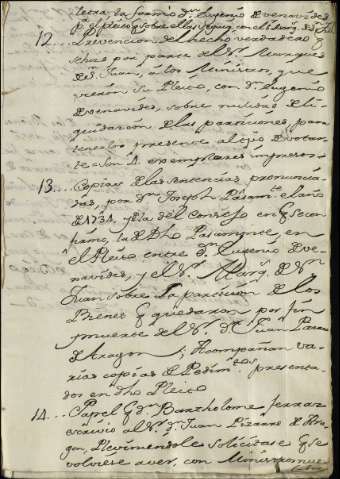 letra de la mano dⁿ. Eugenio Venavides
12.. Prevencion del hecho verdadero q̃
se haze por parte del Sʳ. Marques
de Sⁿ. Juan, a los Ministros, que
verán su Pleito, con dⁿ. Eugenio
Benavides, sobre nulidad de li-
quidacion de las particiones, para
tenerlos presente al tpo. de votar-
se son 4. exemplares impresos
13.... Copias de las sentencias, pronuncia-
das, por dⁿ. Joseph el año
de 1731, y la del Consejo en q̃ se con-
firmó, la de dho en
el Pleito entre dⁿ. Eugenio Ve-
navides, y el Sʳ. Marq̃. de Sⁿ
Juan sobre la particion de los
Bienes q̃ quedaron por fin
y muerte del Sʳ. Dⁿ. Juan
de Aragon; Acompañan va-
rias copias de Pedimᵗᵒˢ. presenta-
dos en dho Pleito
14... Papel q̃ dⁿ. Bartholome
escrivio al Sʳ. dⁿ. Juan Lizarazo de Ara-
gon, Previniendole solicitase q̃ se
volviese a ver, con Ministros nue-